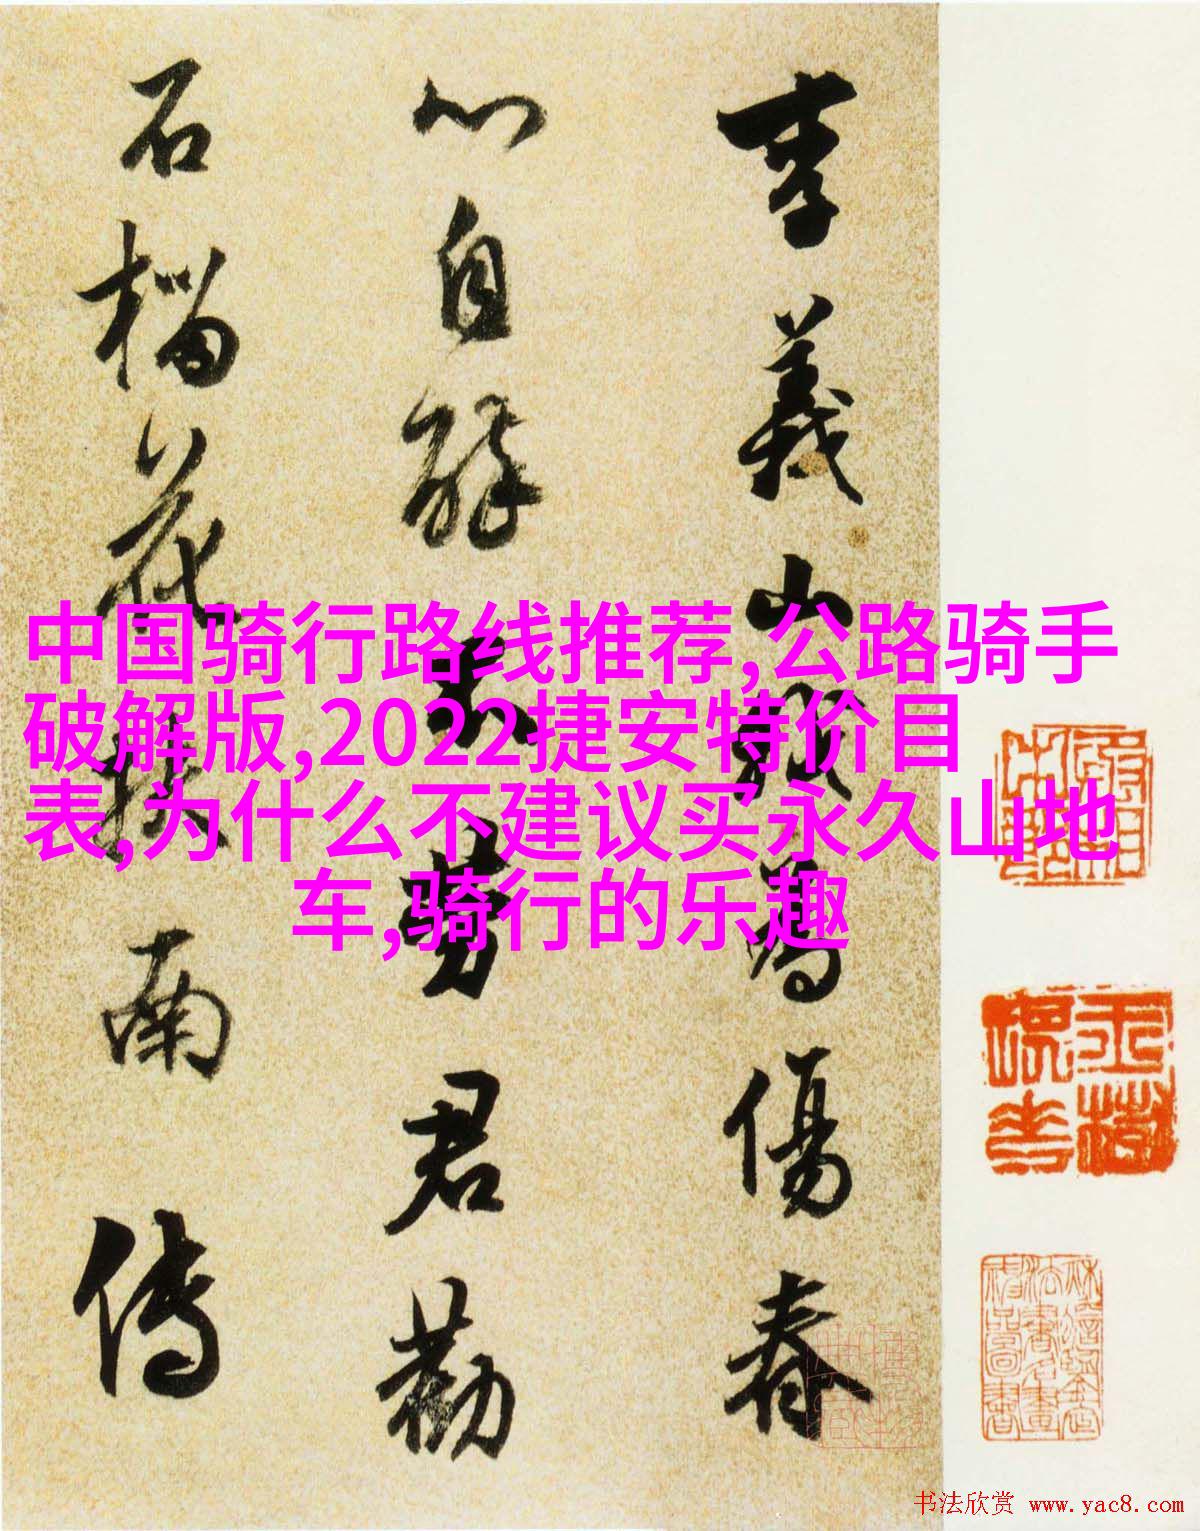 李義山我為傷春
心自醉不勞君勸
石榴花扶南傳
中国骑行路线推荐,公路骑手
破解版,2022捷安特价目
表,为什么不建议买永久山地
车,骑行的乐趣
书法欣赏 www.yac8.com